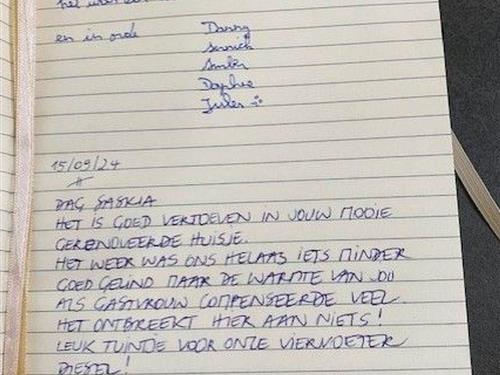 het
en in orde Danny
Amber
Daphne
Jules
15/09/24
DAG SASKIA
HET IS GOED VERTOEVEN IN JOUW MOOIE
GERENOVEERDE HUISJE.
HET WEER WAS ONS HELAAS IETS MINDER
GOED GEZIND MAAR DE WARMTE VAN JOU
ALS GASTVROUW COMPENSEERDE VEEL.
HET ONTBREEKT HIER AAN NIETS!
LEUK TUINTJE VOOR ONZE VIERVOETER
DIESEL!